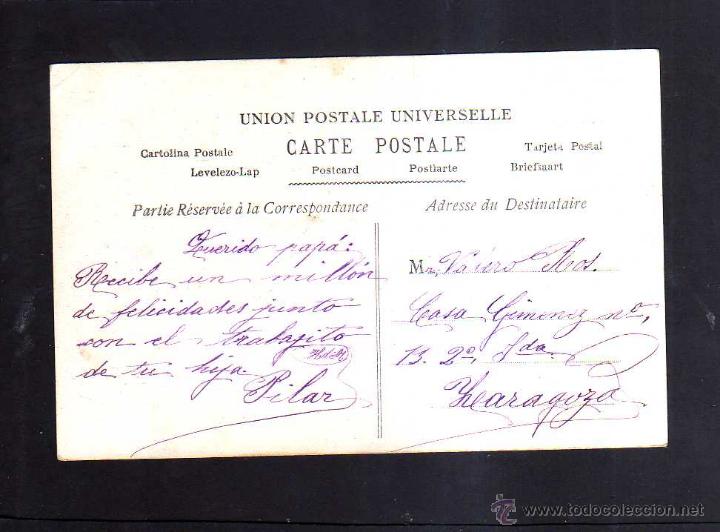 UNION POSTALE UNIVERSELLE
CARTE POSTALE
Cartolina Postale
Tarjeta Postal
Levelezo-Lap
Postcard
Postkarte
Briefkaart
Partie Réservée à la Correspondance
Querido papá:
Recibe un millón
de felicidades junto
con el trabagito
de tu hija.
Pilar
Adresse du Destinataire
M
Casa Gimenez nº,
13. 2º,
Zaragoza
© todocoleccion
www.todocoleccion.net